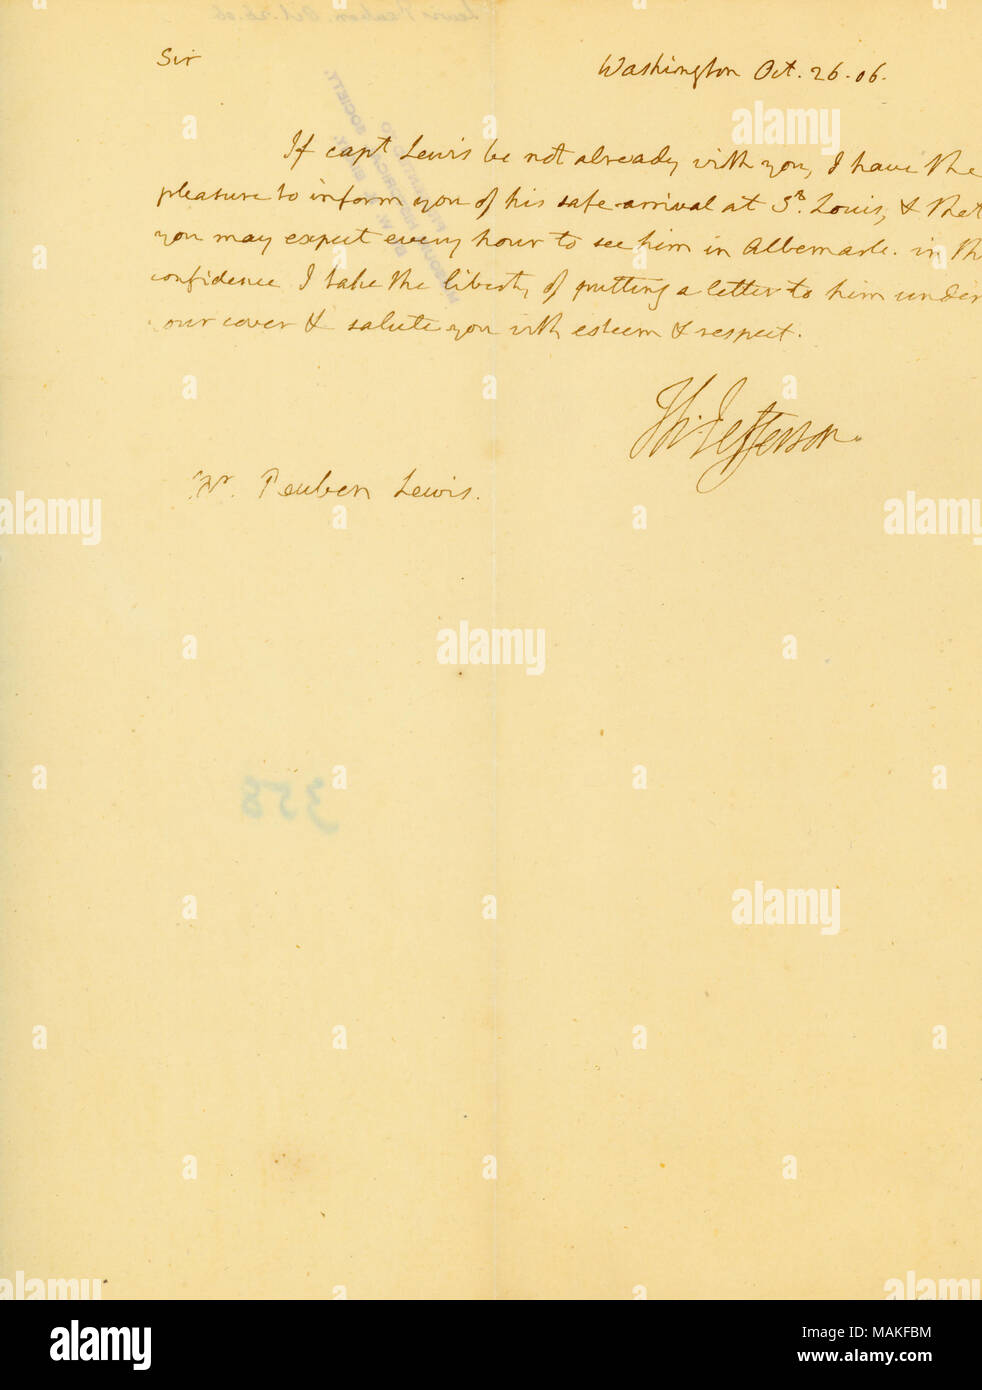 Sir
Washington Oct. 26. 06.
If capt Lewis be not already with you, I have the
pleasure to inform you of his safe arrival at St. Louis, & that
you may expect every hour to see him in Albemarle. in th
confidence I take the liberty of putting a letter to him under
our cover & salute you with esteem & respect.
Th: Jefferson.
Mr. Reuben Lewis.
358
alamy
Image ID: MAKFBM
www.alamy.com